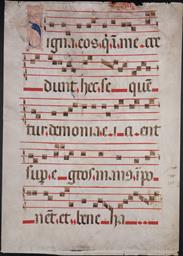 Signa eos q̃ i me cre
dunt. hec. se quẽ
tur. demonia e i ci ent
sup. e gros man9 ĩpo
nẽt. et. bene ha